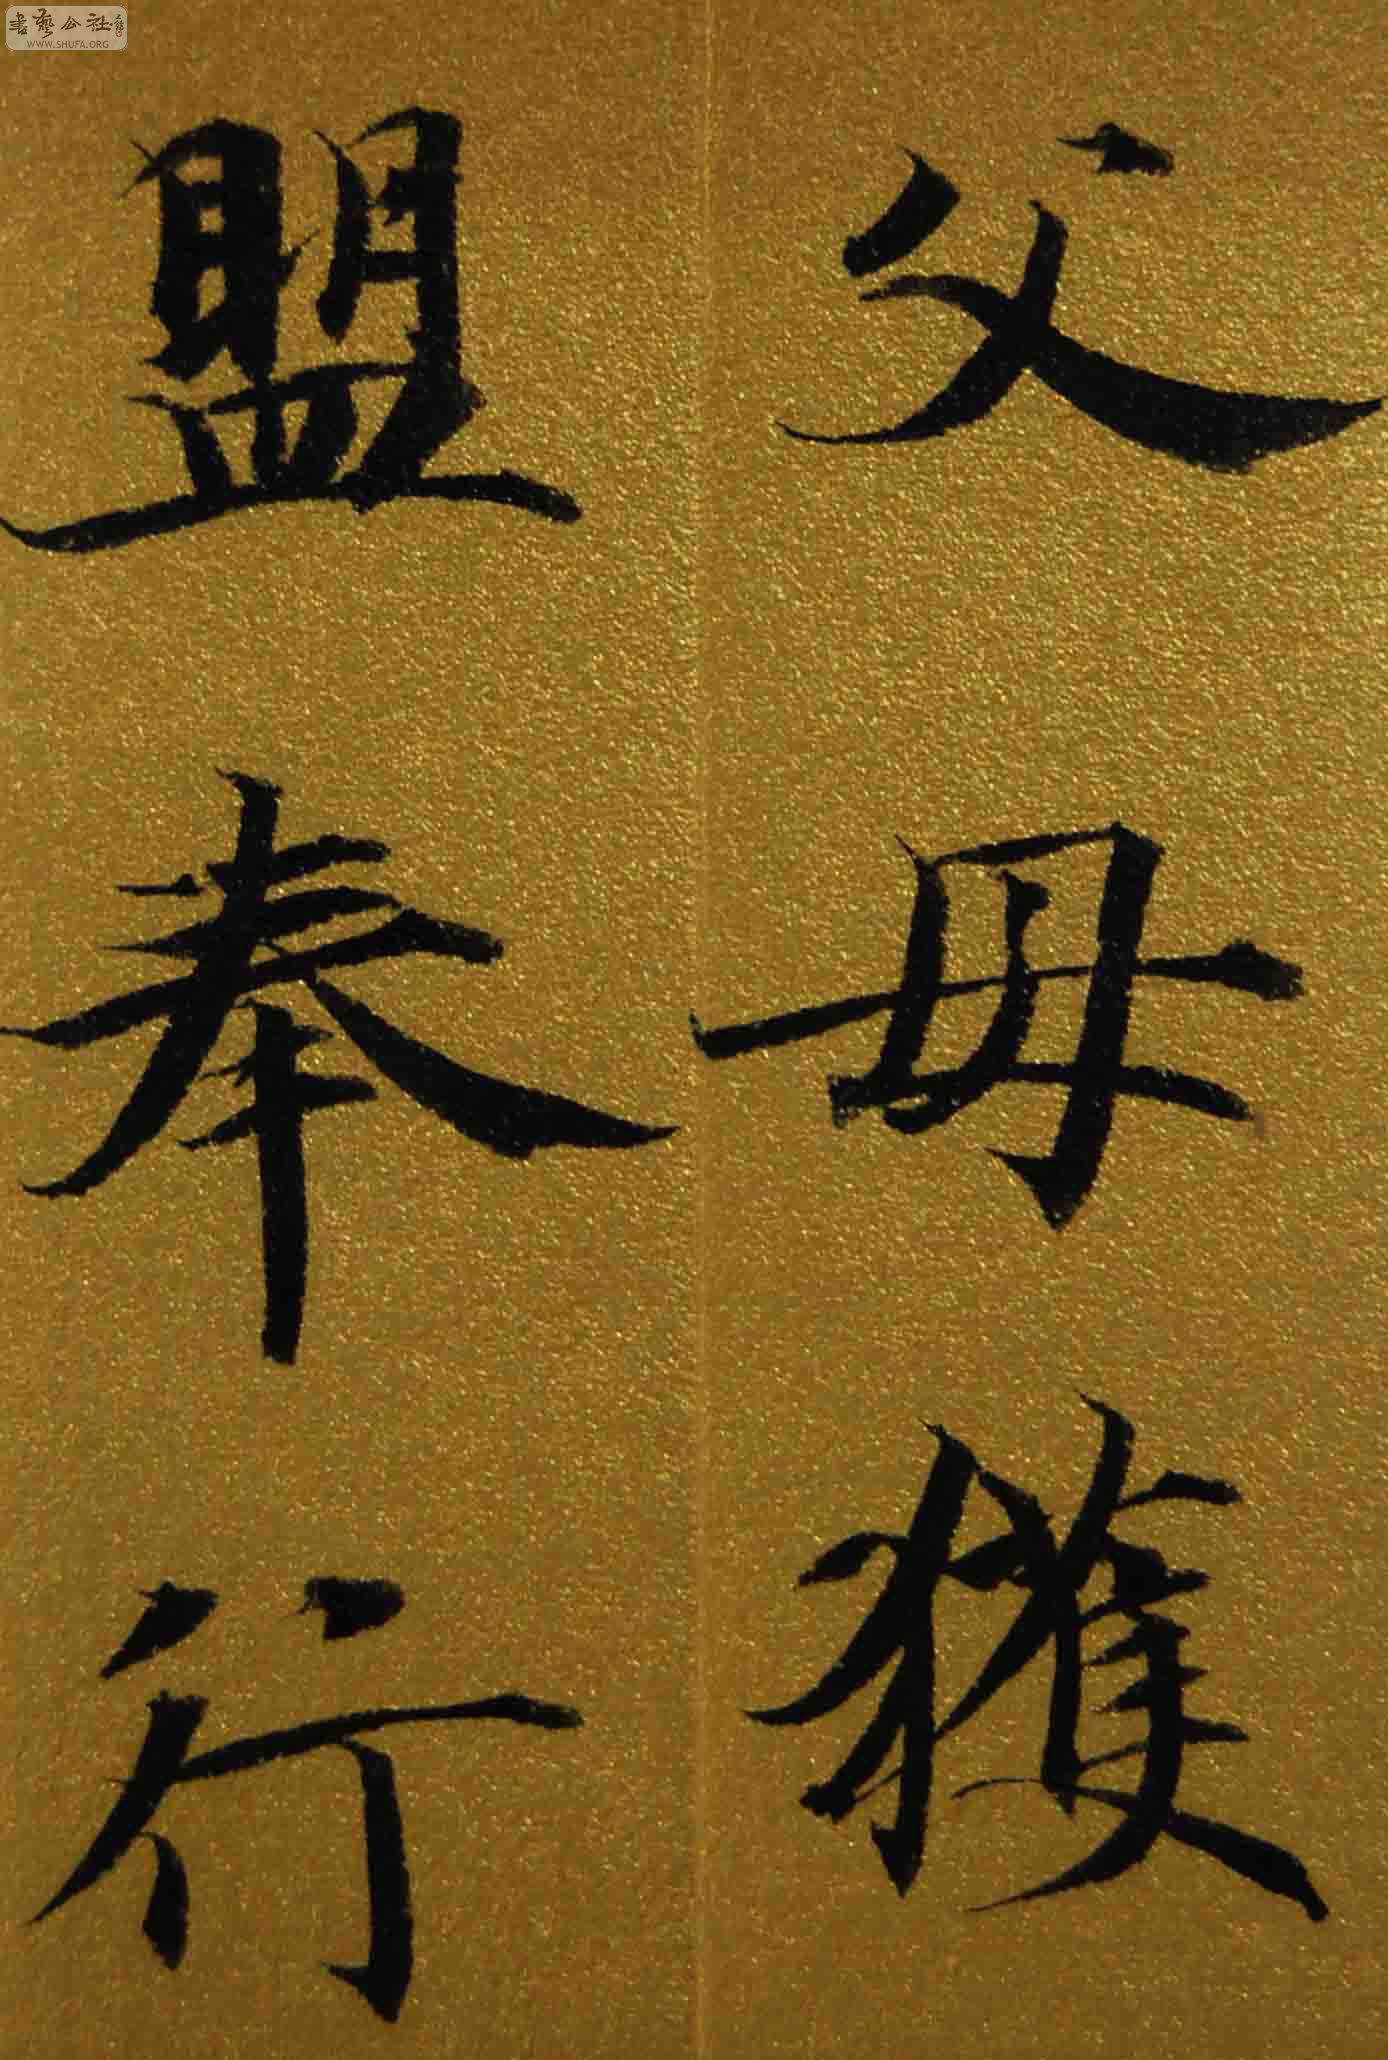 父母獲
盟奉行
書藝公社
WWW.SHUFA.ORG